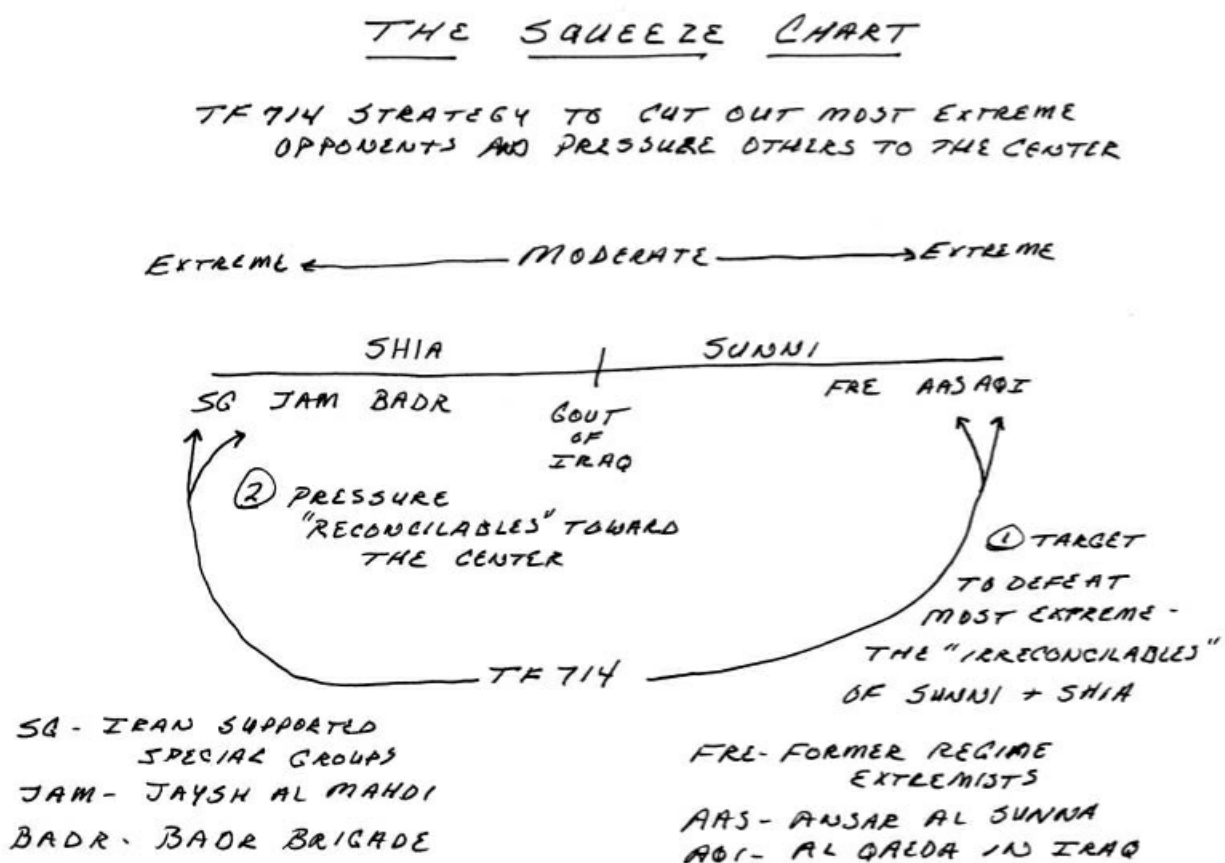 THE SQUEEZE CHART
TF 714 STRATEGY TO CUT OUT MOST EXTREME
OPPONENTS AND PRESSURE OTHERS TO THE CENTER
EXTREME MODERATE EXTREME
SHIA SUNNI
SG JAM BADR FRE AAS AQI
GOVT
OF
IRAQ
2 PRESSURE
"RECONCILABLES" TOWARD
THE CENTER
1 TARGET
TO DEFEAT
MOST EXTREME -
THE "IRRECONCILABLES"
OF SUNNI + SHIA
TF 714
SG - IRAN SUPPORTED
SPECIAL GROUPS
JAM - JAYSH AL MAHDI
BADR - BADR BRIGADE
FRE - FORMER REGIME
EXTREMISTS
AAS - ANSAR AL SUNNA
AQI - AL QAEDA IN IRAQ